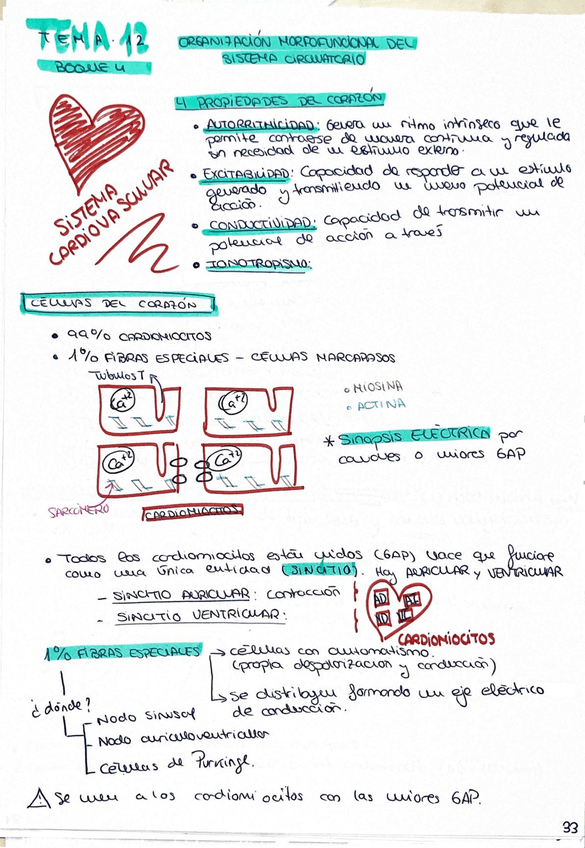 TEMA.12
BOQUE 4
ORGANIZACIÓN MORFOFUNCIONAL DEL
SISTEMA CIRCULATORIO
4 PROPIEDADES DEL CORAZÓN
• AUTORRITMICIDAD: Genera un ritmo intrínseco que le
permite contraerse de manera continua y regulada
sin necesidad de un estímulo externo.
• EXCITABILIDAD: Capacidad de responder a un estímulo
generado y transmitiendo un nuevo potencial de
acción.
• CONDUCTIVIDAD: Capacidad de trasmitir un
potencial de acción a través
• IONOTROPISMO:
SISTEMA
CARDIOVASCULAR
CÉLULAS DEL CORAZÓN
• 99% CARDIOMIOCITOS
• 1% FIBRAS ESPECIALES - CÉLULAS MARCAPASOS
Tubulos T
Ca+2
Ca+2
Ca+2
Ca+2
SARCÓMERO
CARDIOMIOCITOS
• MIOSINA
• ACTINA
* Sinapsis ELÉCTRICA por
canales o uniones GAP
• Todos los cardiomiocitos están unidos (GAP) hace que funcione
como una única entidad (SINCITIO). Hay AURICULAR y VENTRICULAR
- SINCITIO AURICULAR: contracción
- SINCITIO VENTRICULAR:
AD AI
CARDIOMIOCITOS
1% FIBRAS ESPECIALES → células con automatismo.
(propia despolarización y conducción)
→ se distribuyen formando un eje eléctrico
de conducción.
¿dónde?
- Nodo sinusal
- Nodo auriculoventricular
- Células de Purkinge.
⚠ Se unen a los cardiomiocitos con las uniones GAP.
33